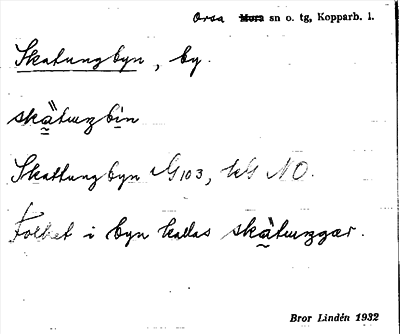 Orsa Mora sn o. tg, Kopparb. l.
Skatungbyn, by.
skä̀tuŋbin
Skattungbyn G103, kG NO.
Folket i byn kallas skàtuŋgar.
Bror Lindén 1932